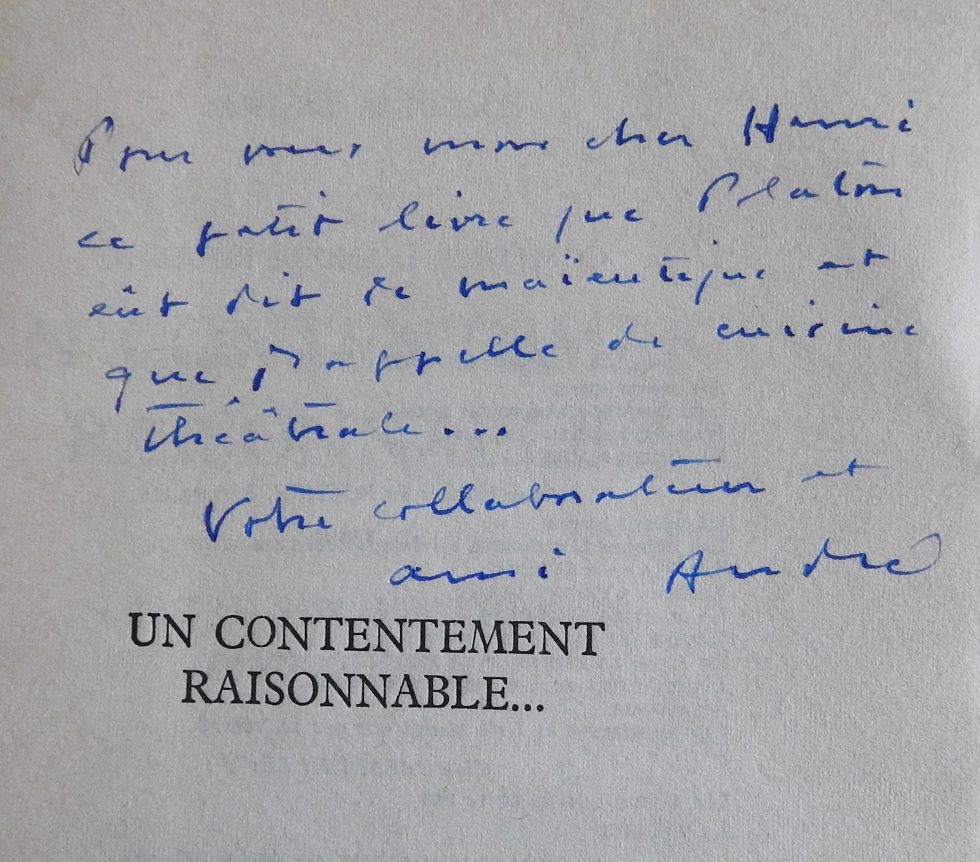 Pour vous, mon cher Henri
ce petit livre que Platon
eût dit de maïeutique et
que j'appelle de cuisine
théâtrale...
Votre collaborateur et
ami André
UN CONTENTEMENT
RAISONNABLE...